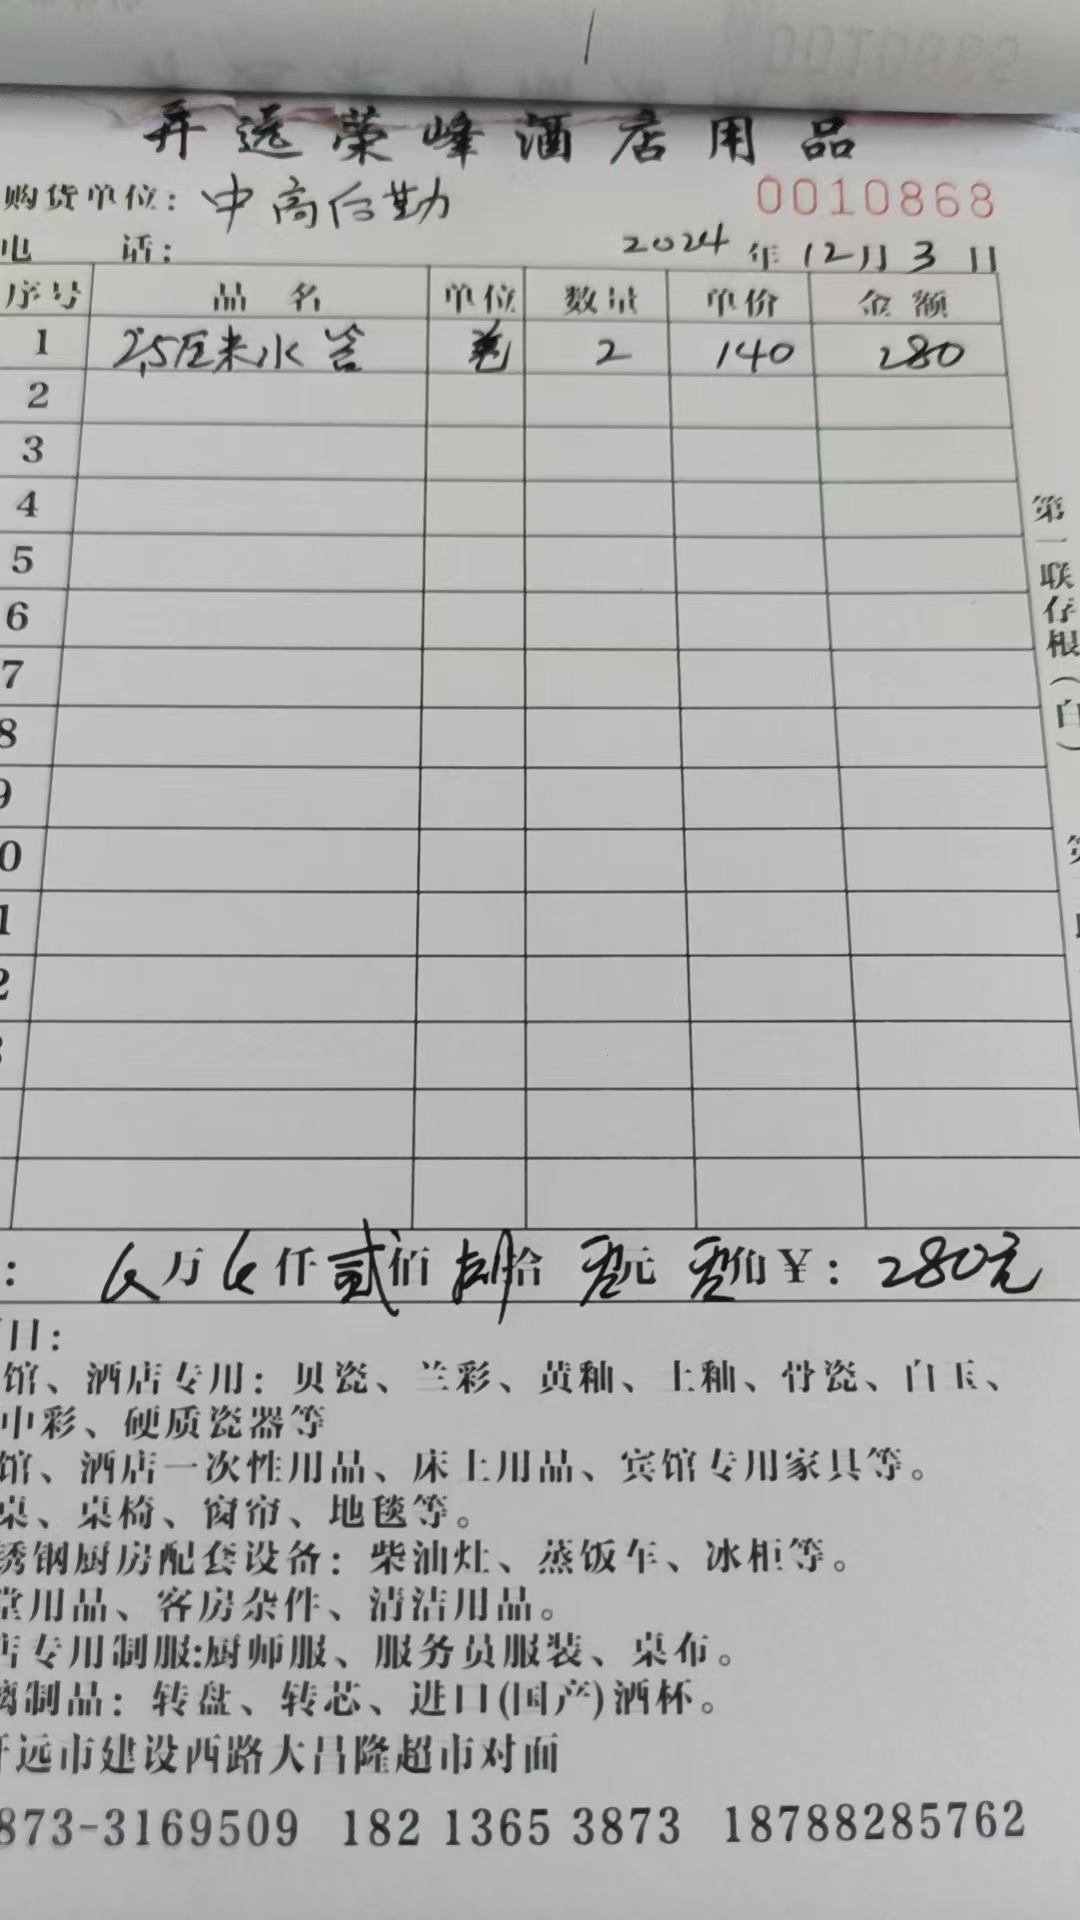 开远荣峰酒店用品
购货单位：中高后勤 0010868
电 话： 2024年12月3日
序号 品名 单位 数量 单价 金额
1 2.5厘米水管 2 140 280
2
3
4
5
6
7
8
9
0
1
2
：万仟贰佰捌拾零元零角￥：280元
目：
馆、酒店专用：贝瓷、兰彩、黄釉、土釉、骨瓷、白玉、
中彩、硬质瓷器等
馆、酒店一次性用品、床上用品、宾馆专用家具等。
桌、桌椅、窗帘、地毯等。
锈钢厨房配套设备：柴油灶、蒸饭车、冰柜等。
堂用品、客房杂件、清洁用品。
店专用制服:厨师服、服务员服装、桌布。
璃制品：转盘、转芯、进口(国产)酒杯。
开远市建设西路大昌隆超市对面
873-3169509 182 1365 3873 18788285762
第一联存根（白）